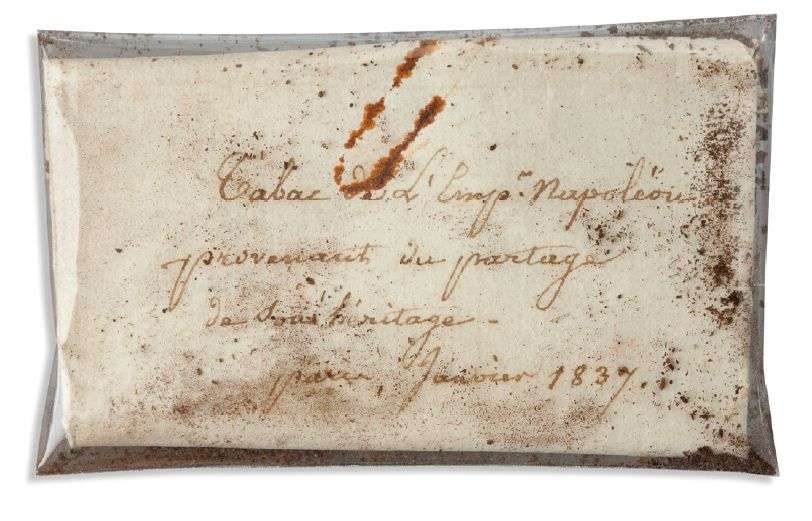 Tabac de L'Emp.r Napoléon
provenant du partage
de son héritage -
paris, Janvier 1837.